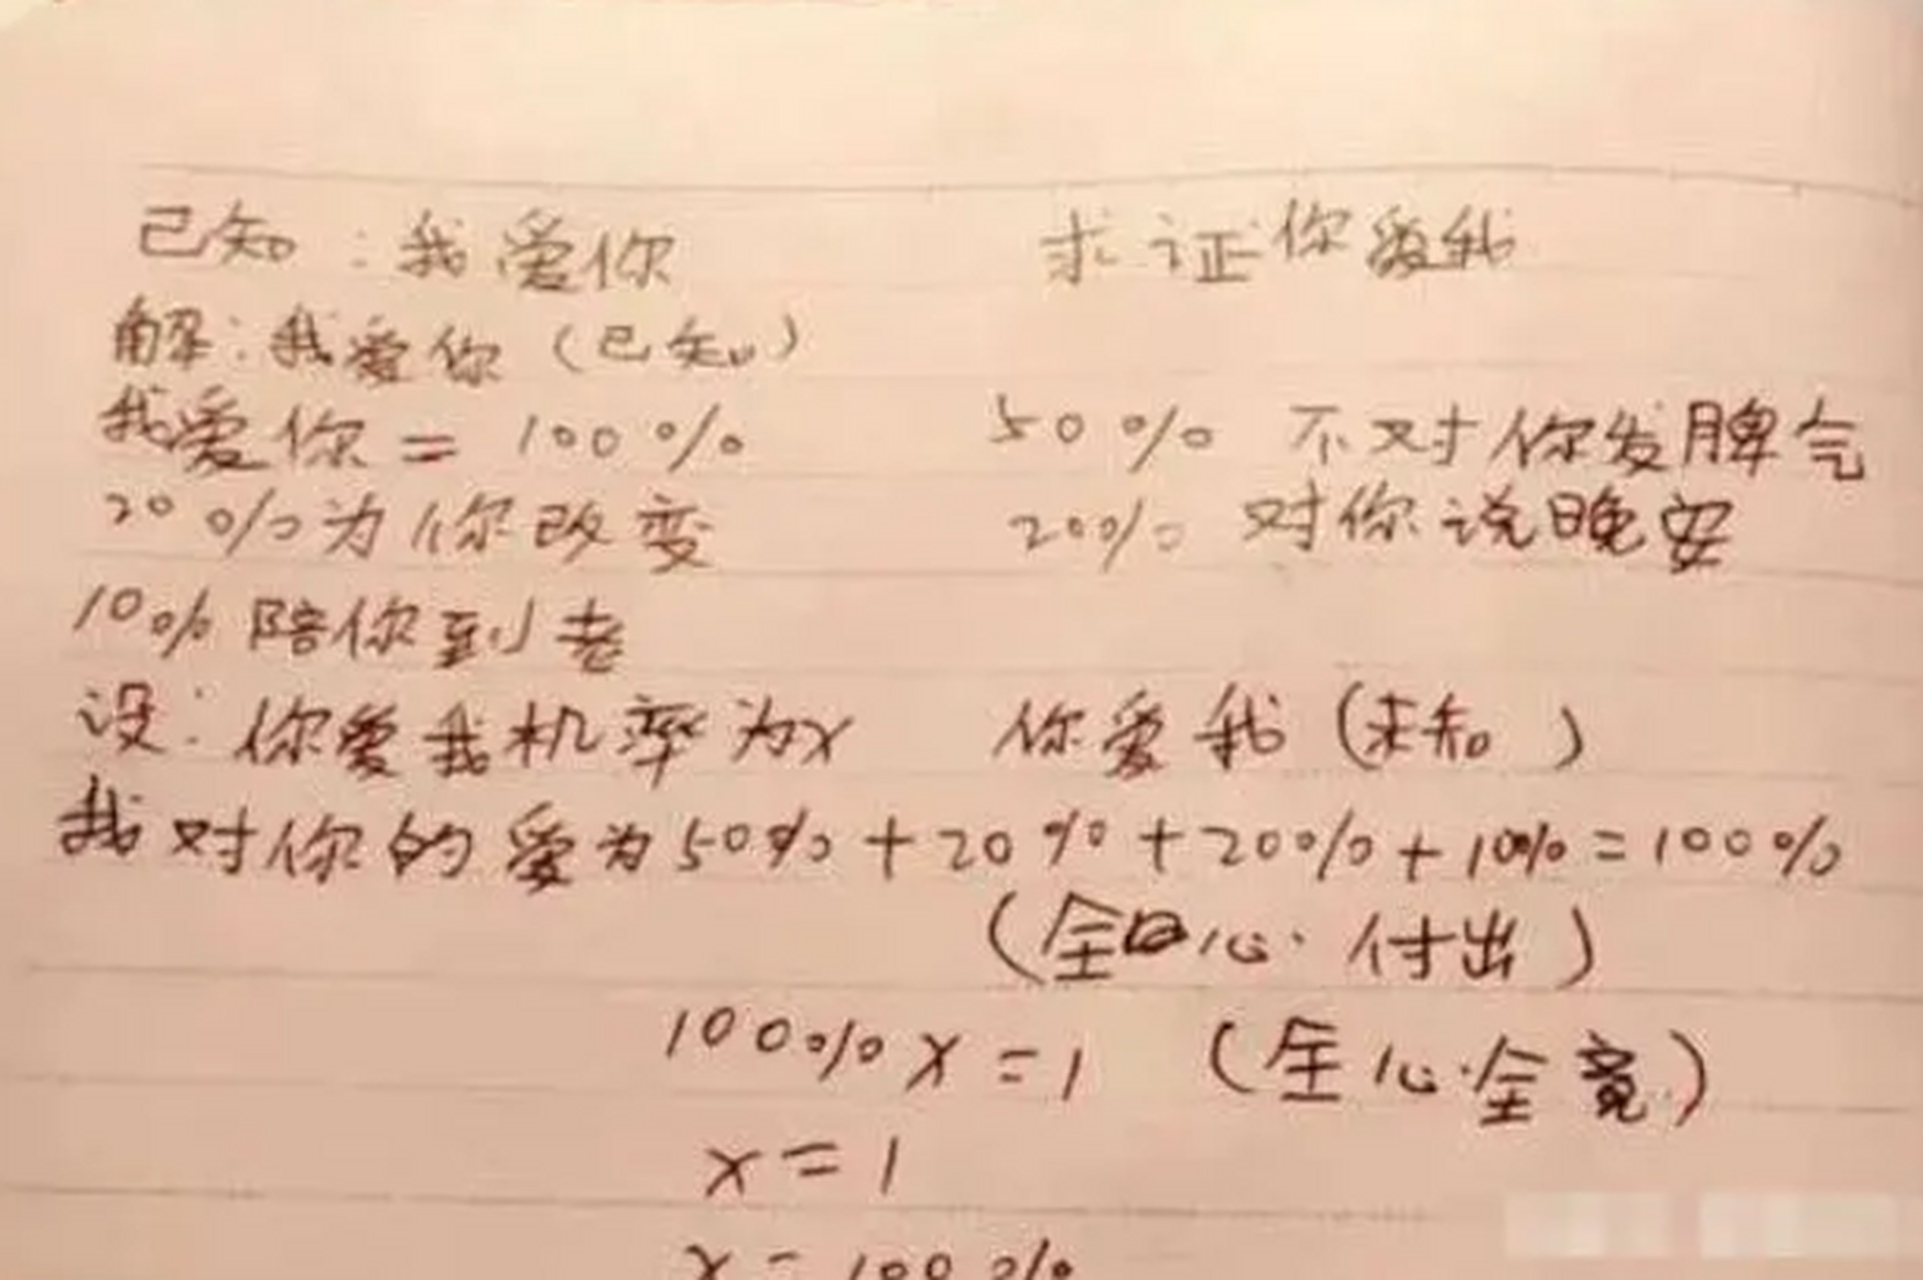 已知：我爱你 求证你爱我
解：我爱你（已知）
我爱你＝100% 50% 不对你发脾气
20%为你改变 20% 对你说晚安
10%陪你到老
设：你爱我机率为x 你爱我（未知）
我对你的爱为50%+20%+20%+10%=100%
（全心付出）
100%x=1 （全心全意）
x=1
x=100%